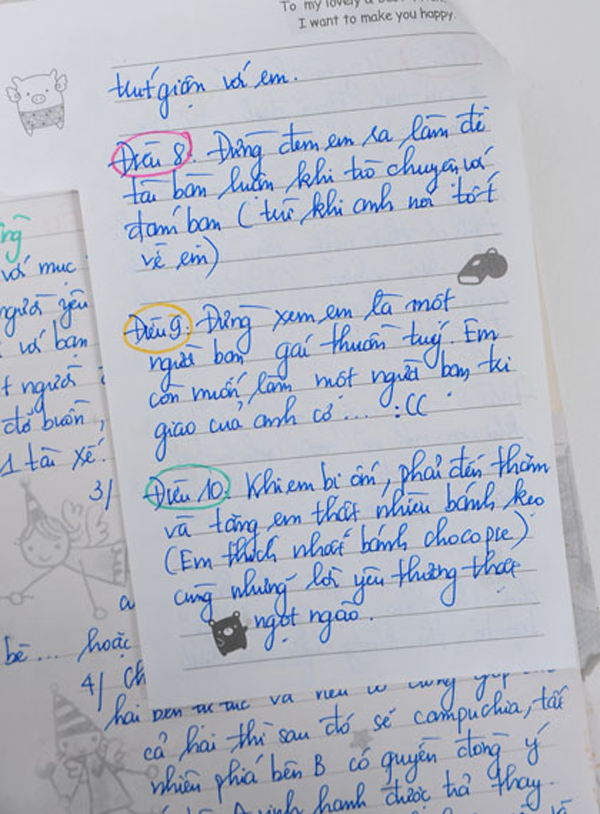 To my lovely
I want to make you happy.
thứ giận với em.
Điều 8: Đừng đem em ra làm đề
tài bàn luận khi trò chuyện với
đám bạn (trừ khi anh nói tốt
về em)
Điều 9: Đừng xem em là một
người bạn gái thuần tuý. Em
còn muốn làm một người bạn tri
giao của anh cơ... :CC
Điều 10: Khi em bị ốm, phải đến thăm
và tặng em thật nhiều bánh kẹo
(Em thích nhất bánh chocopie)
cùng những lời yêu thương thật
ngọt ngào.
với mục
người yêu
với bạn
người
đỡ buồn,
1 tài xế.
3/
bè... hoặc
4/ Ch
hai bên
cả hai thì sau đó sẽ campuchia, tất
nhiên phía bên B có quyền đồng ý
hạnh được trả thay.